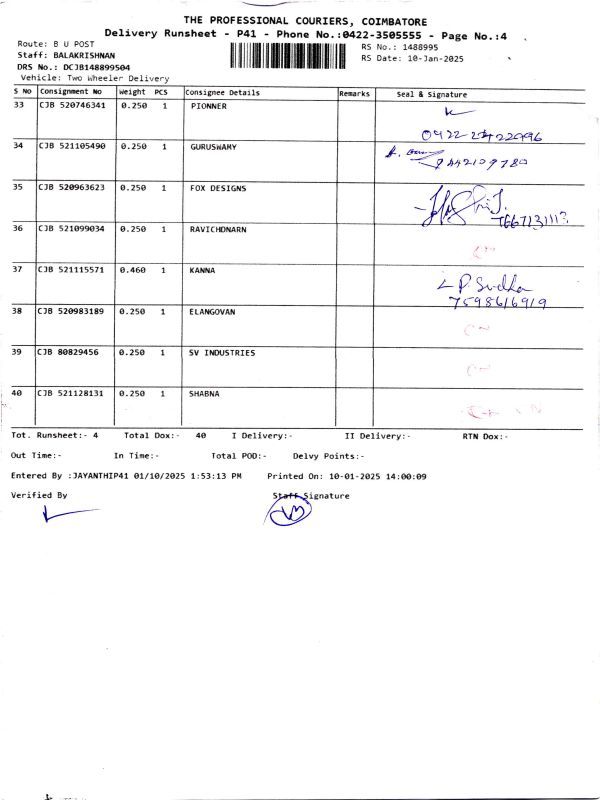 THE PROFESSIONAL COURIERS, COIMBATORE
Delivery Runsheet - P41 - Phone No.:0422-3505555 - Page No.:4
Route: B U POST
RS No.: 1488995
Staff: BALAKRISHNAN
RS Date: 10-Jan-2025
DRS No.: DCJB148899504
Vehicle: Two Wheeler Delivery
S No Consignment No Weight PCS Consignee Details Remarks Seal & Signature
33 CJB 520746341 0.250 1 PIONNER
34 CJB 521105490 0.250 1 GURUSWARY
9442109780
35 CJB 520963623 0.250 1 FOX DESIGNS
36 CJB 521099034 0.250 1 RAVICHDNARN
37 CJB 521115571 0.460 1 KANNA
P. Sudha
7598616919
38 CJB 520983189 0.250 1 ELANGOVAN
39 CJB 80829456 0.250 1 SV INDUSTRIES
40 CJB 521128131 0.250 1 SHABNA
Tot. Runsheet:- 4 Total Dox:- 40 I Delivery:- II Delivery:- RTN Dox:-
Out Time:- In Time:- Total POD:- Delvy Points:-
Entered By :JAYANTHIP41 01/10/2025 1:53:13 PM Printed On: 10-01-2025 14:00:09
Verified By Staff Signature